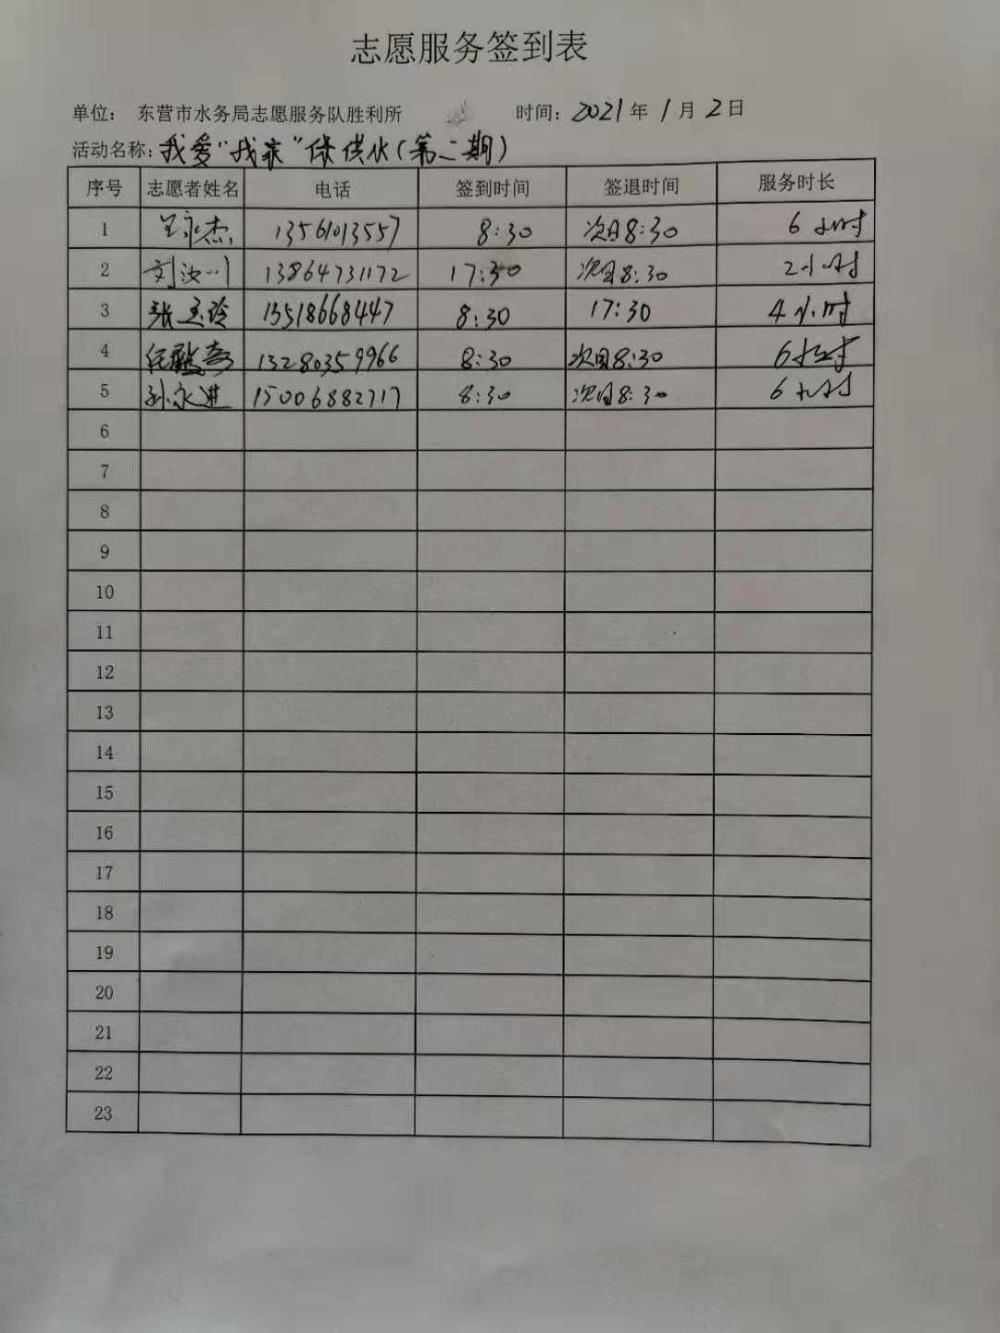 志愿服务签到表
单位： 东营市水务局志愿服务队胜利所 时间：2021年1月2日
活动名称：我爱“我家”保供水（第二期）
序号 志愿者姓名 电话 签到时间 签退时间 服务时长
1 王永杰 13561013557 8:30 次日8:30 6小时
2 刘汝川 13864731172 17:30 次日8:30 2小时
3 张玉玲 15518668447 8:30 17:30 4小时
4 任 13280359966 8:30 次日8:30 6小时
5 孙永进 15006882717 8:30 次日8:30 6小时
6
7
8
9
10
11
12
13
14
15
16
17
18
19
20
21
22
23